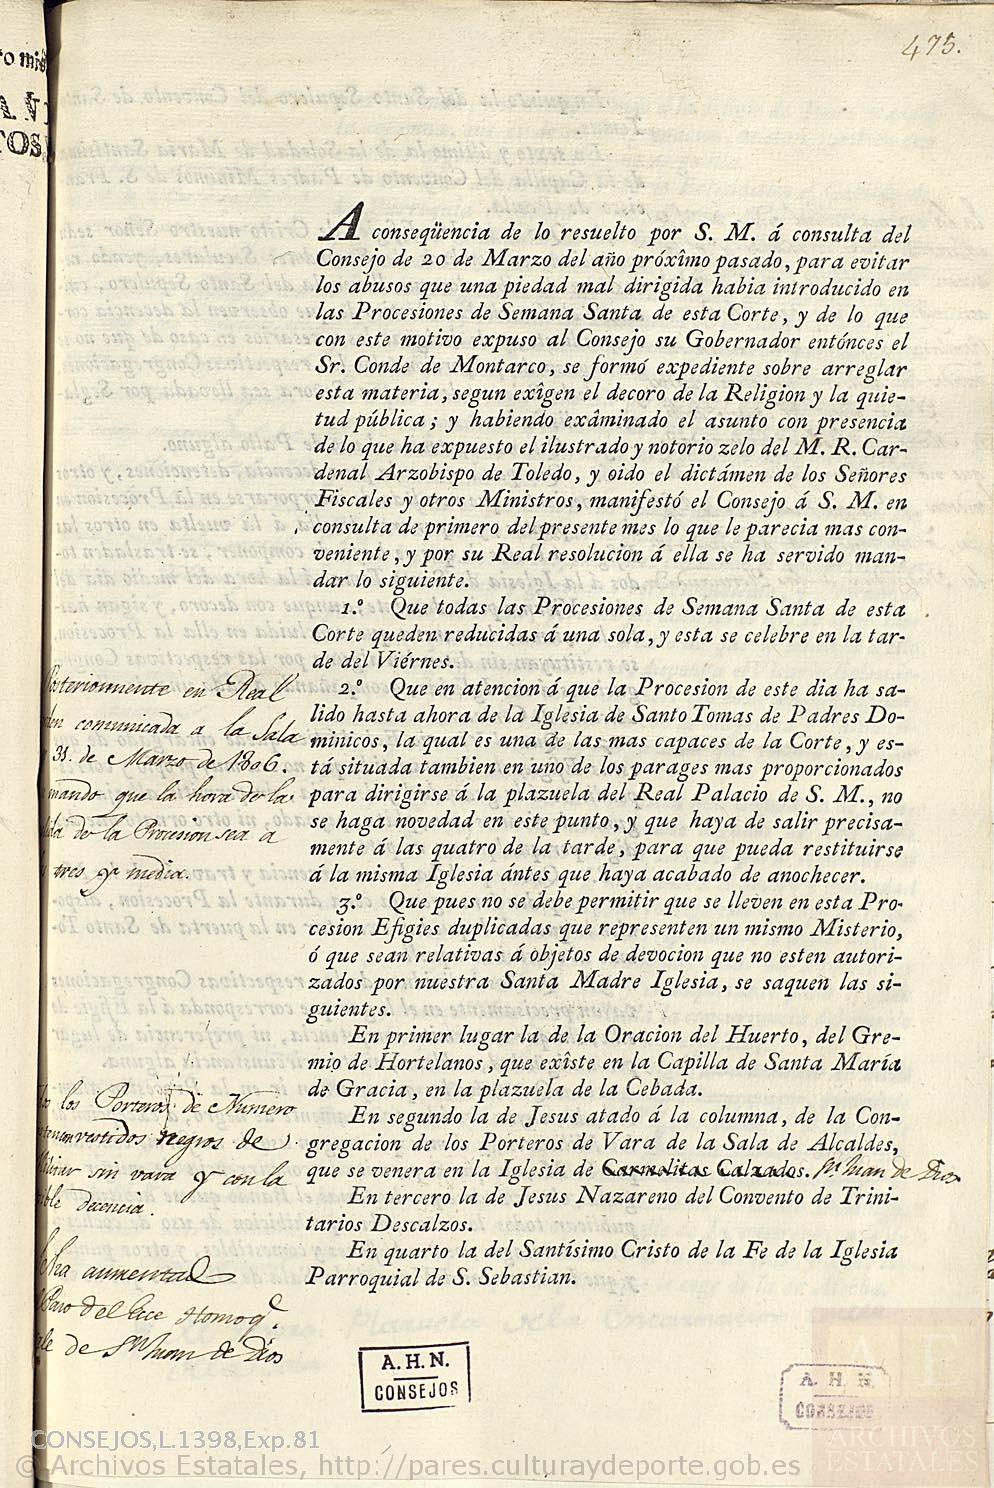 475.
A conseqüencia de lo resuelto por S. M. á consulta del
Consejo de 20 de Marzo del año próxîmo pasado, para evitar
los abusos que una piedad mal dirigida habia introducido en
las Procesiones de Semana Santa de esta Corte, y de lo que
con este motivo expuso al Consejo su Gobernador entónces el
Sr. Conde de Montarco, se formó expediente sobre arreglar
esta materia, segun exîgen el decoro de la Religion y la quie-
tud pública; y habiendo exâminado el asunto con presencia
de lo que ha expuesto el ilustrado y notorio zelo del M. R. Car-
denal Arzobispo de Toledo, y oido el dictámen de los Señores
Fiscales y otros Ministros, manifestó el Consejo á S. M. en
consulta de primero del presente mes lo que le parecia mas con-
veniente, y por su Real resolucion á ella se ha servido man-
dar lo siguiente.
1.º Que todas las Procesiones de Semana Santa de esta
Corte queden reducidas á una sola, y esta se celebre en la tar-
de del Viérnes.
2.º Que en atencion á que la Procesion de este dia ha sa-
lido hasta ahora de la Iglesia de Santo Tomas de Padres Do-
minicos, la qual es una de las mas capaces de la Corte, y es-
tá situada tambien en uno de los parages mas proporcionados
para dirigirse á la plazuela del Real Palacio de S. M., no
se haga novedad en este punto, y que haya de salir precisa-
mente á las quatro de la tarde, para que pueda restituirse
á la misma Iglesia ántes que haya acabado de anochecer.
3.º Que pues no se debe permitir que se lleven en esta Pro-
cesion Efigies duplicadas que representen un mismo Misterio,
ó que sean relativas á objetos de devocion que no esten autori-
zados por nuestra Santa Madre Iglesia, se saquen las si-
guientes.
En primer lugar la de la Oracion del Huerto, del Gre-
mio de Hortelanos, que exîste en la Capilla de Santa María
de Gracia, en la plazuela de la Cebada.
En segundo la de Jesus atado á la columna, de la Con-
gregacion de los Porteros de Vara de la Sala de Alcaldes,
que se venera en la Iglesia de Carmelitas Calzados. Sn. Juan de Dios
En tercero la de Jesus Nazareno del Convento de Trini-
tarios Descalzos.
En quarto la del Santísimo Cristo de la Fe de la Iglesia
Parroquial de S. Sebastian.
en Real
comunicada a la Sala
31. de Marzo de 1806.
mando que la hora de la
de la Procesion sea a
tres y media.
los Porteros de Numero
vestidos negros de
sin vara y con la
decencia.
ha aumentado
Paso del Ecce Homo q.e
de Sn. Juan de Dios
A. H. N.
CONSEJOS
A. H. N.
CONSEJOS
CONSEJOS,L.1398,Exp.81
© Archivos Estatales, http://pares.culturaydeporte.gob.es
ARCHIVOS
ESTATALES